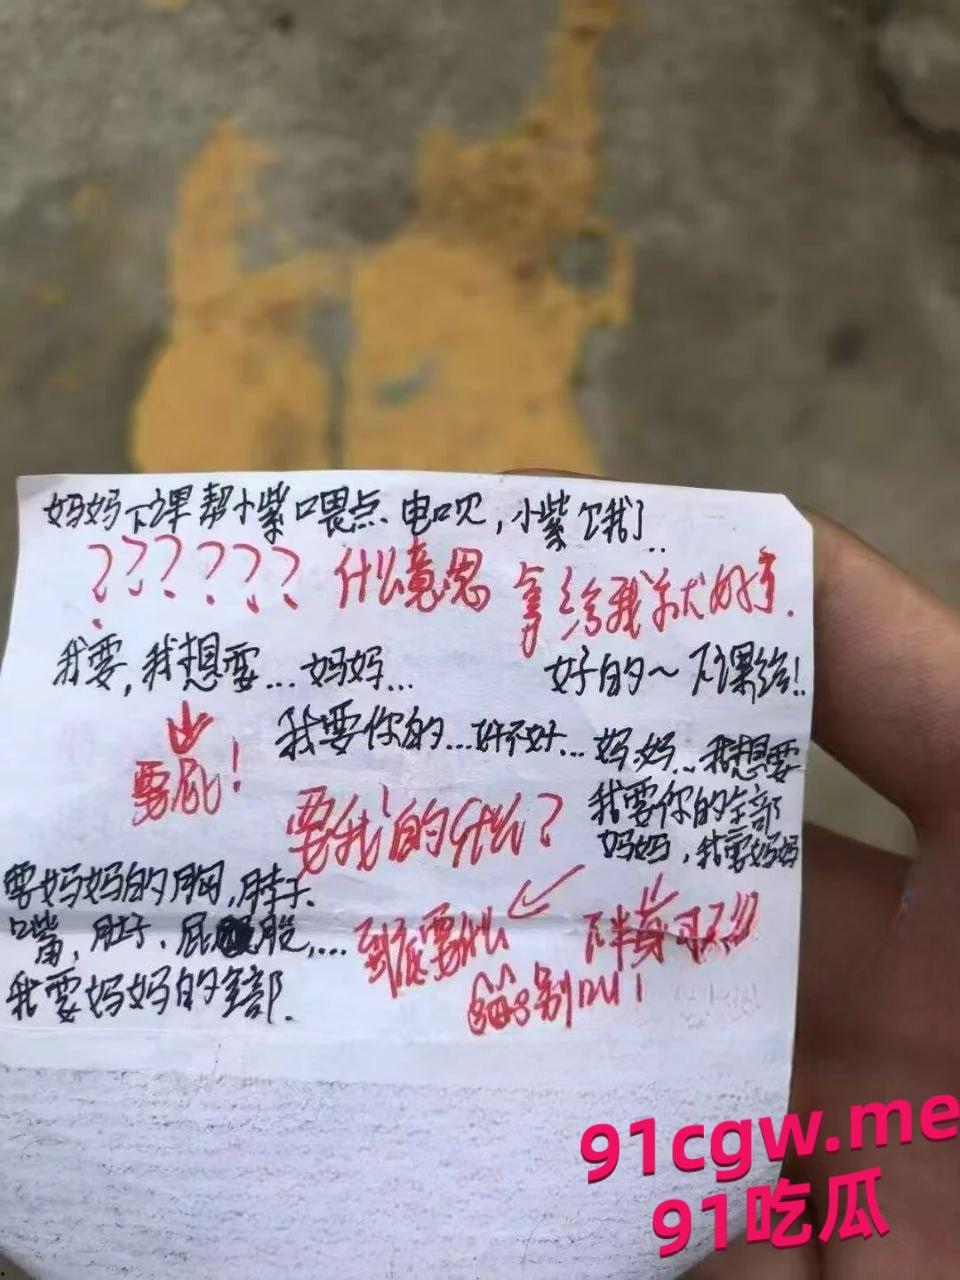 妈妈下课帮小紫喂点电呗，小紫饿了..
?????? 什么意思 拿给我就好了.
我要，我想要...妈妈... 好的~下课给!
要屁! 我要你的...好不好... 妈妈...我想要
要我的什么? 我要你的全部
妈妈，我要妈妈
要妈妈的胸，脖子、
嘴，肚子、屁股，... 到底要什么 下半身可
我要妈妈的全部. 别
91cgw.me
91吃瓜